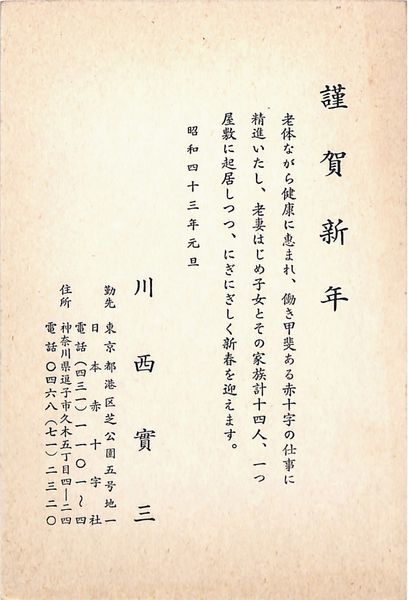 謹賀新年
老体ながら健康に恵まれ、働き甲斐ある赤十字の仕事に
精進いたし、老妻はじめ子女とその家族計十四人、一つ
屋敷に起居しつつ、にぎにぎしく新春を迎えます。
昭和四十三年元旦
川西實三
勤先 東京都港区芝公園五号地一
日本赤十字社
電話(四三一)一一〇一〜四
住所 神奈川県逗子市久木五丁目四ー二四
電話〇四六八(七一)二三二〇